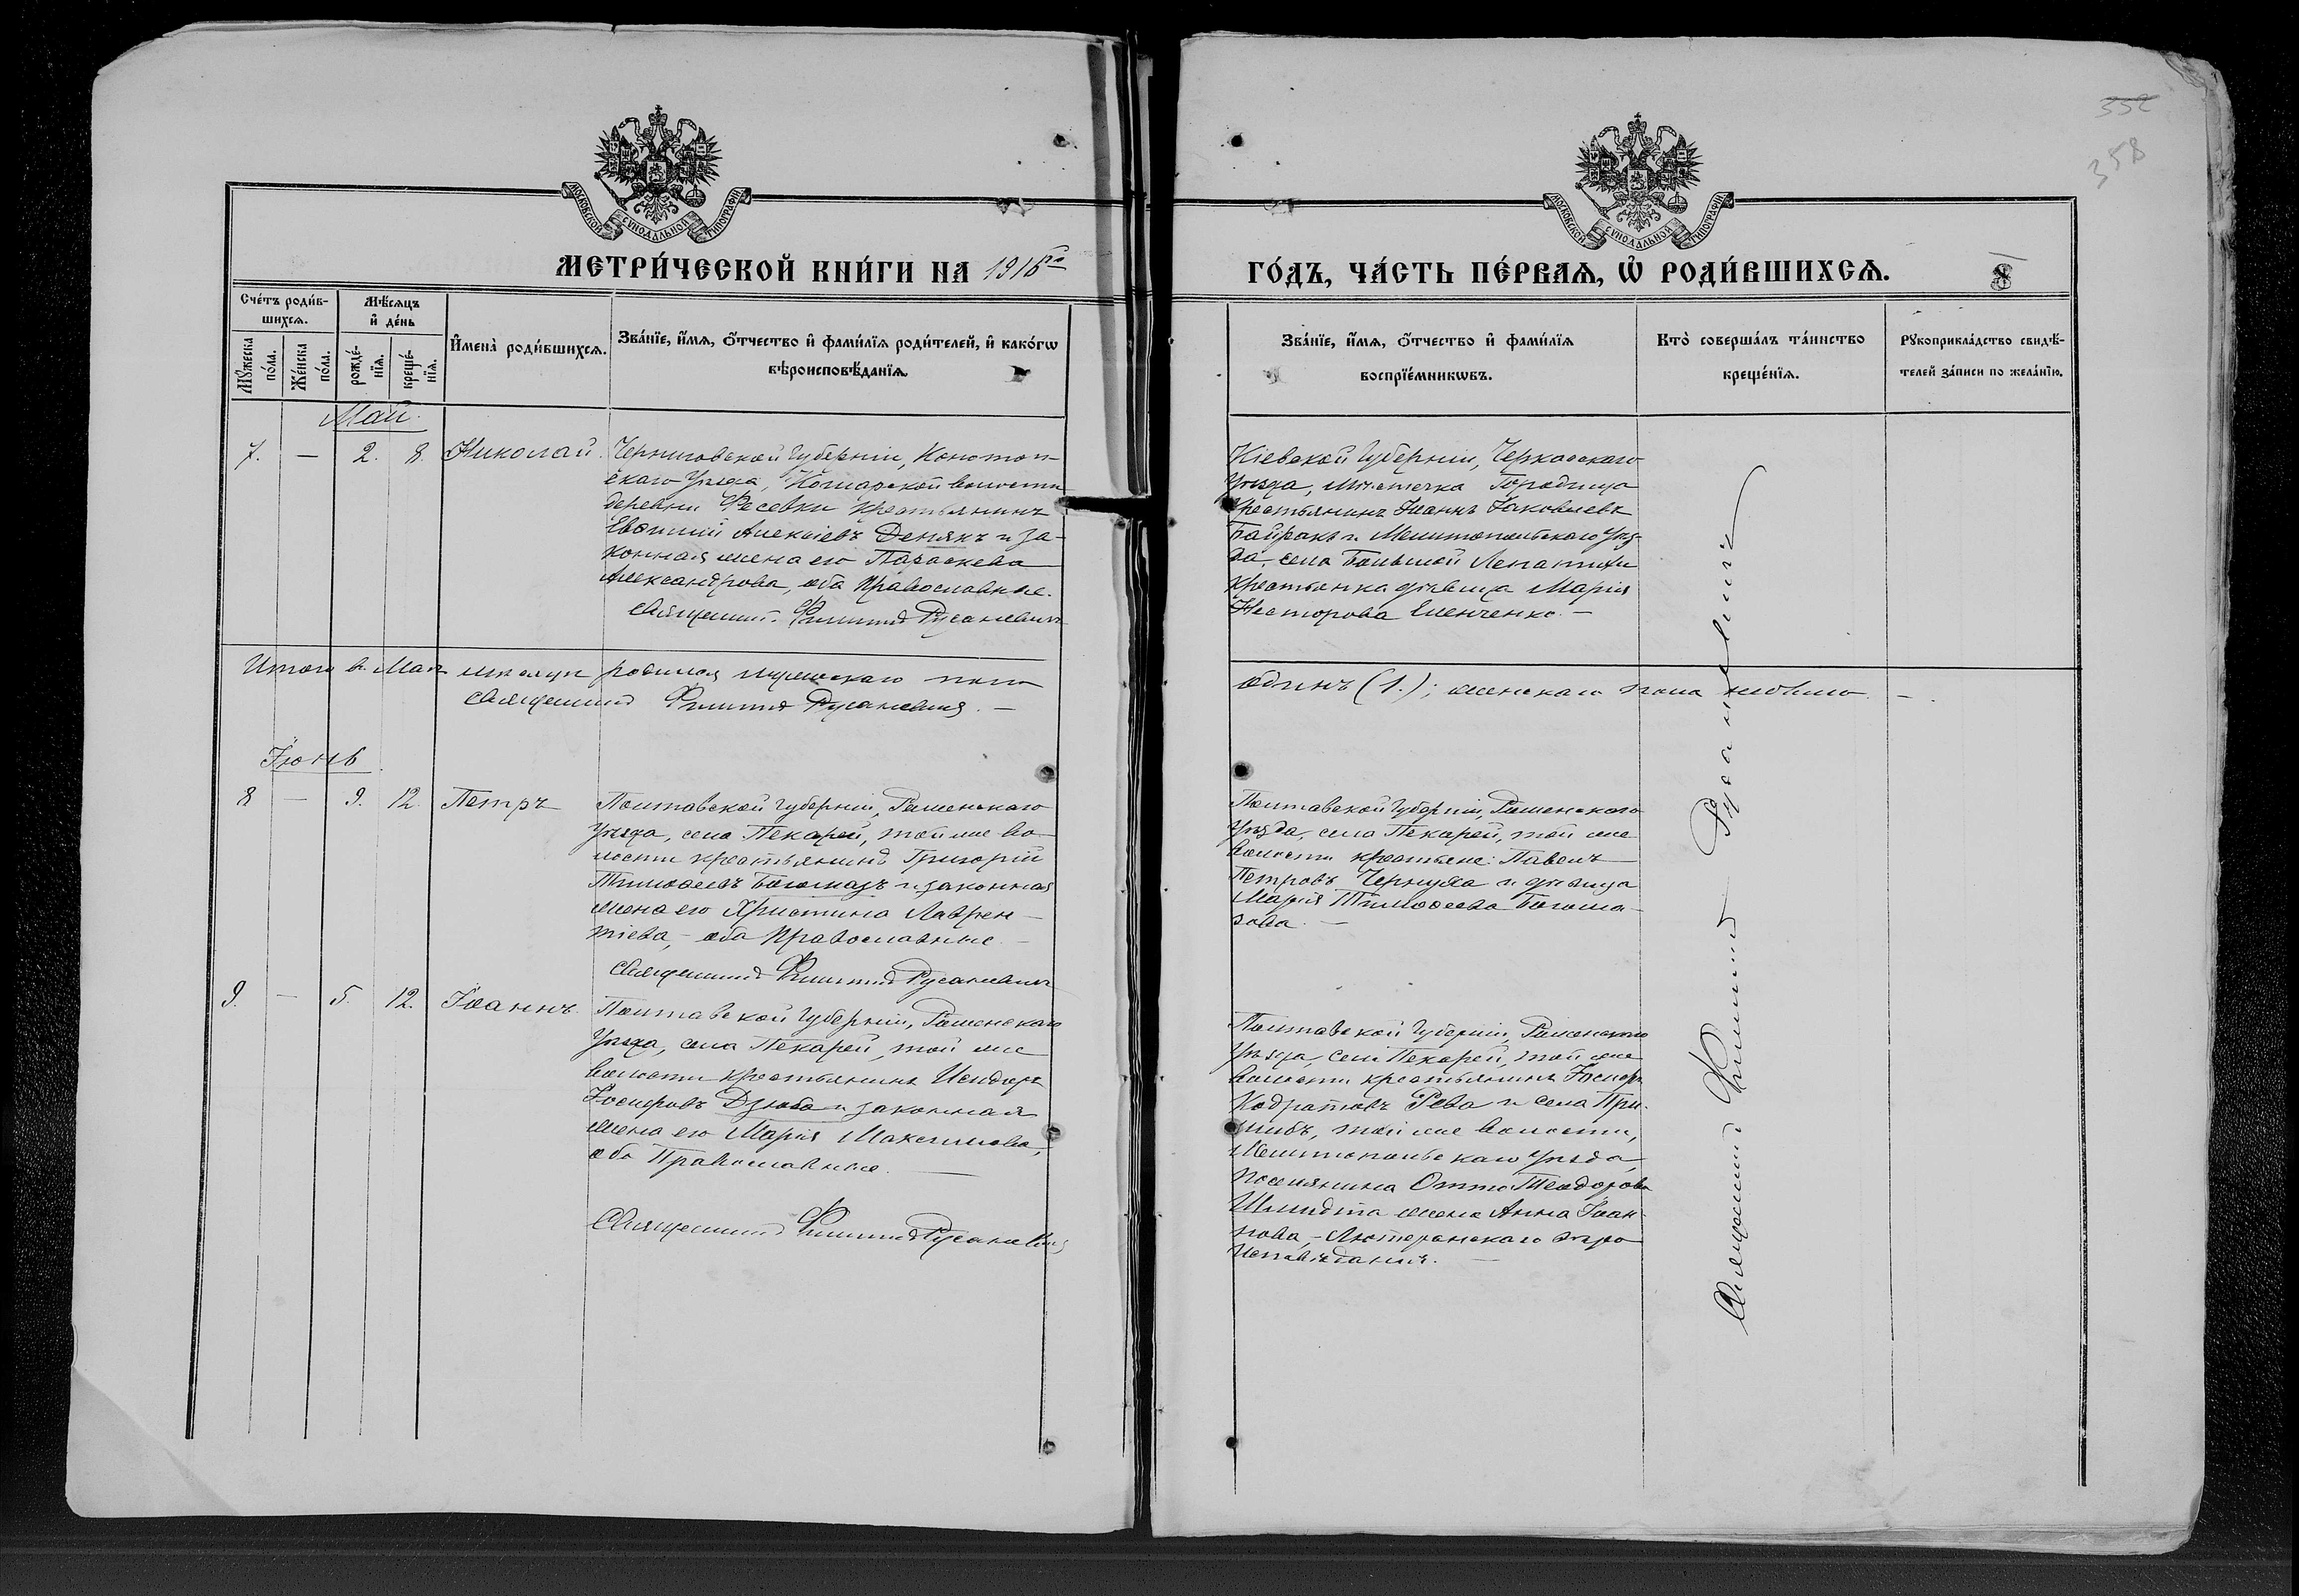 352
358
МОСКОВСКОЙ СѴНОДАЛЬНОЙ ТИПОГРАФІИ
МОСКОВСКОЙ СѴНОДАЛЬНОЙ ТИПОГРАФІИ
МЕТРИ́ЧЕСКОЙ КНИ́ГИ НА 1916го
ГО́ДЪ, ЧА́СТЬ ПЕ́РВАЯ, Ѡ҆ РОДИ́ВШИХСЯ.
8
Сче́тъ роди́в-
шихсѧ.
Мꙋ́жеска по́ла.
Же́нска по́ла.
Мѣ́сѧцъ
и҆ де́нь
рожде́-
нїѧ.
креще́-
нїѧ.
И҆мена̀ роди́вшихсѧ.
Зва́нїе, и҆́мѧ, ѻ҆́тчество и҆ фами́лїѧ роди́телей, и҆ како́гѡ
вѣроисповѣ́данїѧ.
Зва́нїе, и҆́мѧ, ѻ҆́тчество и҆ фами́лїѧ
воспрїе́мникѡвъ.
Кто̀ соверша́лъ та́инство
креще́нїѧ.
Рꙋкоприкла́дство свидѣ́-
телей за́писи по жела́нїю.
Май.
7. — 2. 8. Николай.
Черниговской губерніи, Конотоп-
скаго уѣзда, волости
деревни Фесевки крестьянинъ
Евѳимій Алексіевъ Денякъ и за-
конная жена его Параскева
Александрова, оба Православные.
Священникъ Филиппъ Русаневичъ
Кіевской губерніи, Черкасскаго
уѣзда, мѣстечка Городища
крестьянинъ Іоаннъ Іаковлевъ
Байракъ и Мелитопольскаго уѣз-
да, села Большой Лепатихи
крестьянка дѣвица Марія
Несторова Еленченко. —
Итого въ Маѣ мѣсяцѣ родился мужескаго пола
один (1.); женскаго пола не было. —
Священникъ Филиппъ Русаневичъ. —
Іюнь
8 — 9. 12. Петръ
Полтавской губерніи, Роменскаго
уѣзда, села Пекарей, той же во-
лости крестьянинъ Григорій
Тимоѳеевъ Богомазъ и законная
жена его Христина Лаврен-
тіева, — оба Православные. —
Священникъ Филиппъ Русаневичъ
Полтавской губерніи, Роменскаго
уѣзда, села Пекарей, той же
волости крестьяне: Павелъ
Петровъ Чернуха и дѣвица
Марія Тимоѳеева Богома-
зова. —
9. — 5. 12. Іоаннъ.
Полтавской губерніи, Роменскаго
уѣзда, села Пекарей, той же
волости крестьянинъ Исидоръ
Іосифовъ Дзюба и законная
жена его Марія Максимова,
оба Православные. —
Священникъ Филиппъ Русаневичъ
Полтавской губерніи, Роменскаго
уѣзда, села Пекарей, той же
волости крестьянинъ Іосифъ
Кодратовъ Рева и села При-
шибъ, той же волости,
Мелитопольскаго уѣзда,
поселянина Отто Теодорова
Шмидта жена Анна Іоан-
нова, — Лютеранскаго вѣро
исповѣданія. —
Священникъ Филиппъ Русаневичъ